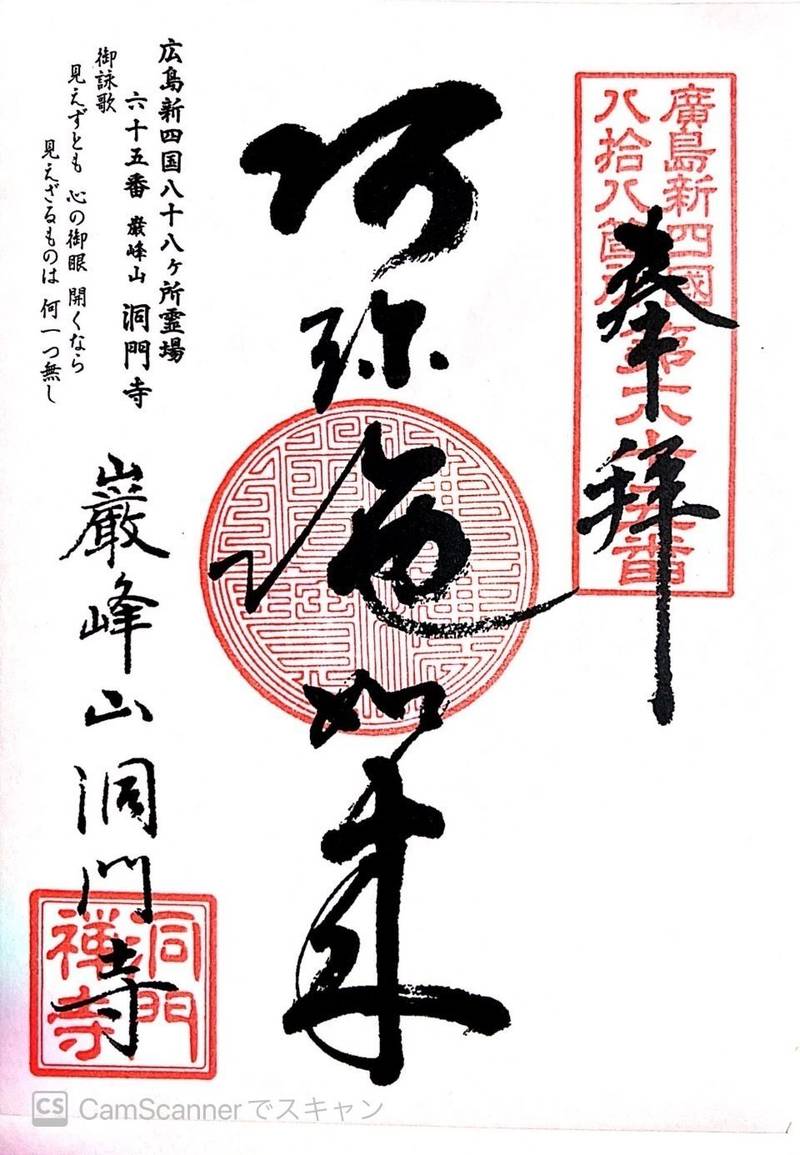 廣島新四國
八拾八箇所第六十五番
奉拝
阿弥陀如来
広島新四国八十八ヶ所霊場
六十五番 巌峰山 洞門寺
御詠歌
見えずとも 心の御眼 開くなら
見えざるものは 何一つ無し
巌峰山 洞門寺
洞門
禅寺
CS CamScannerでスキャン